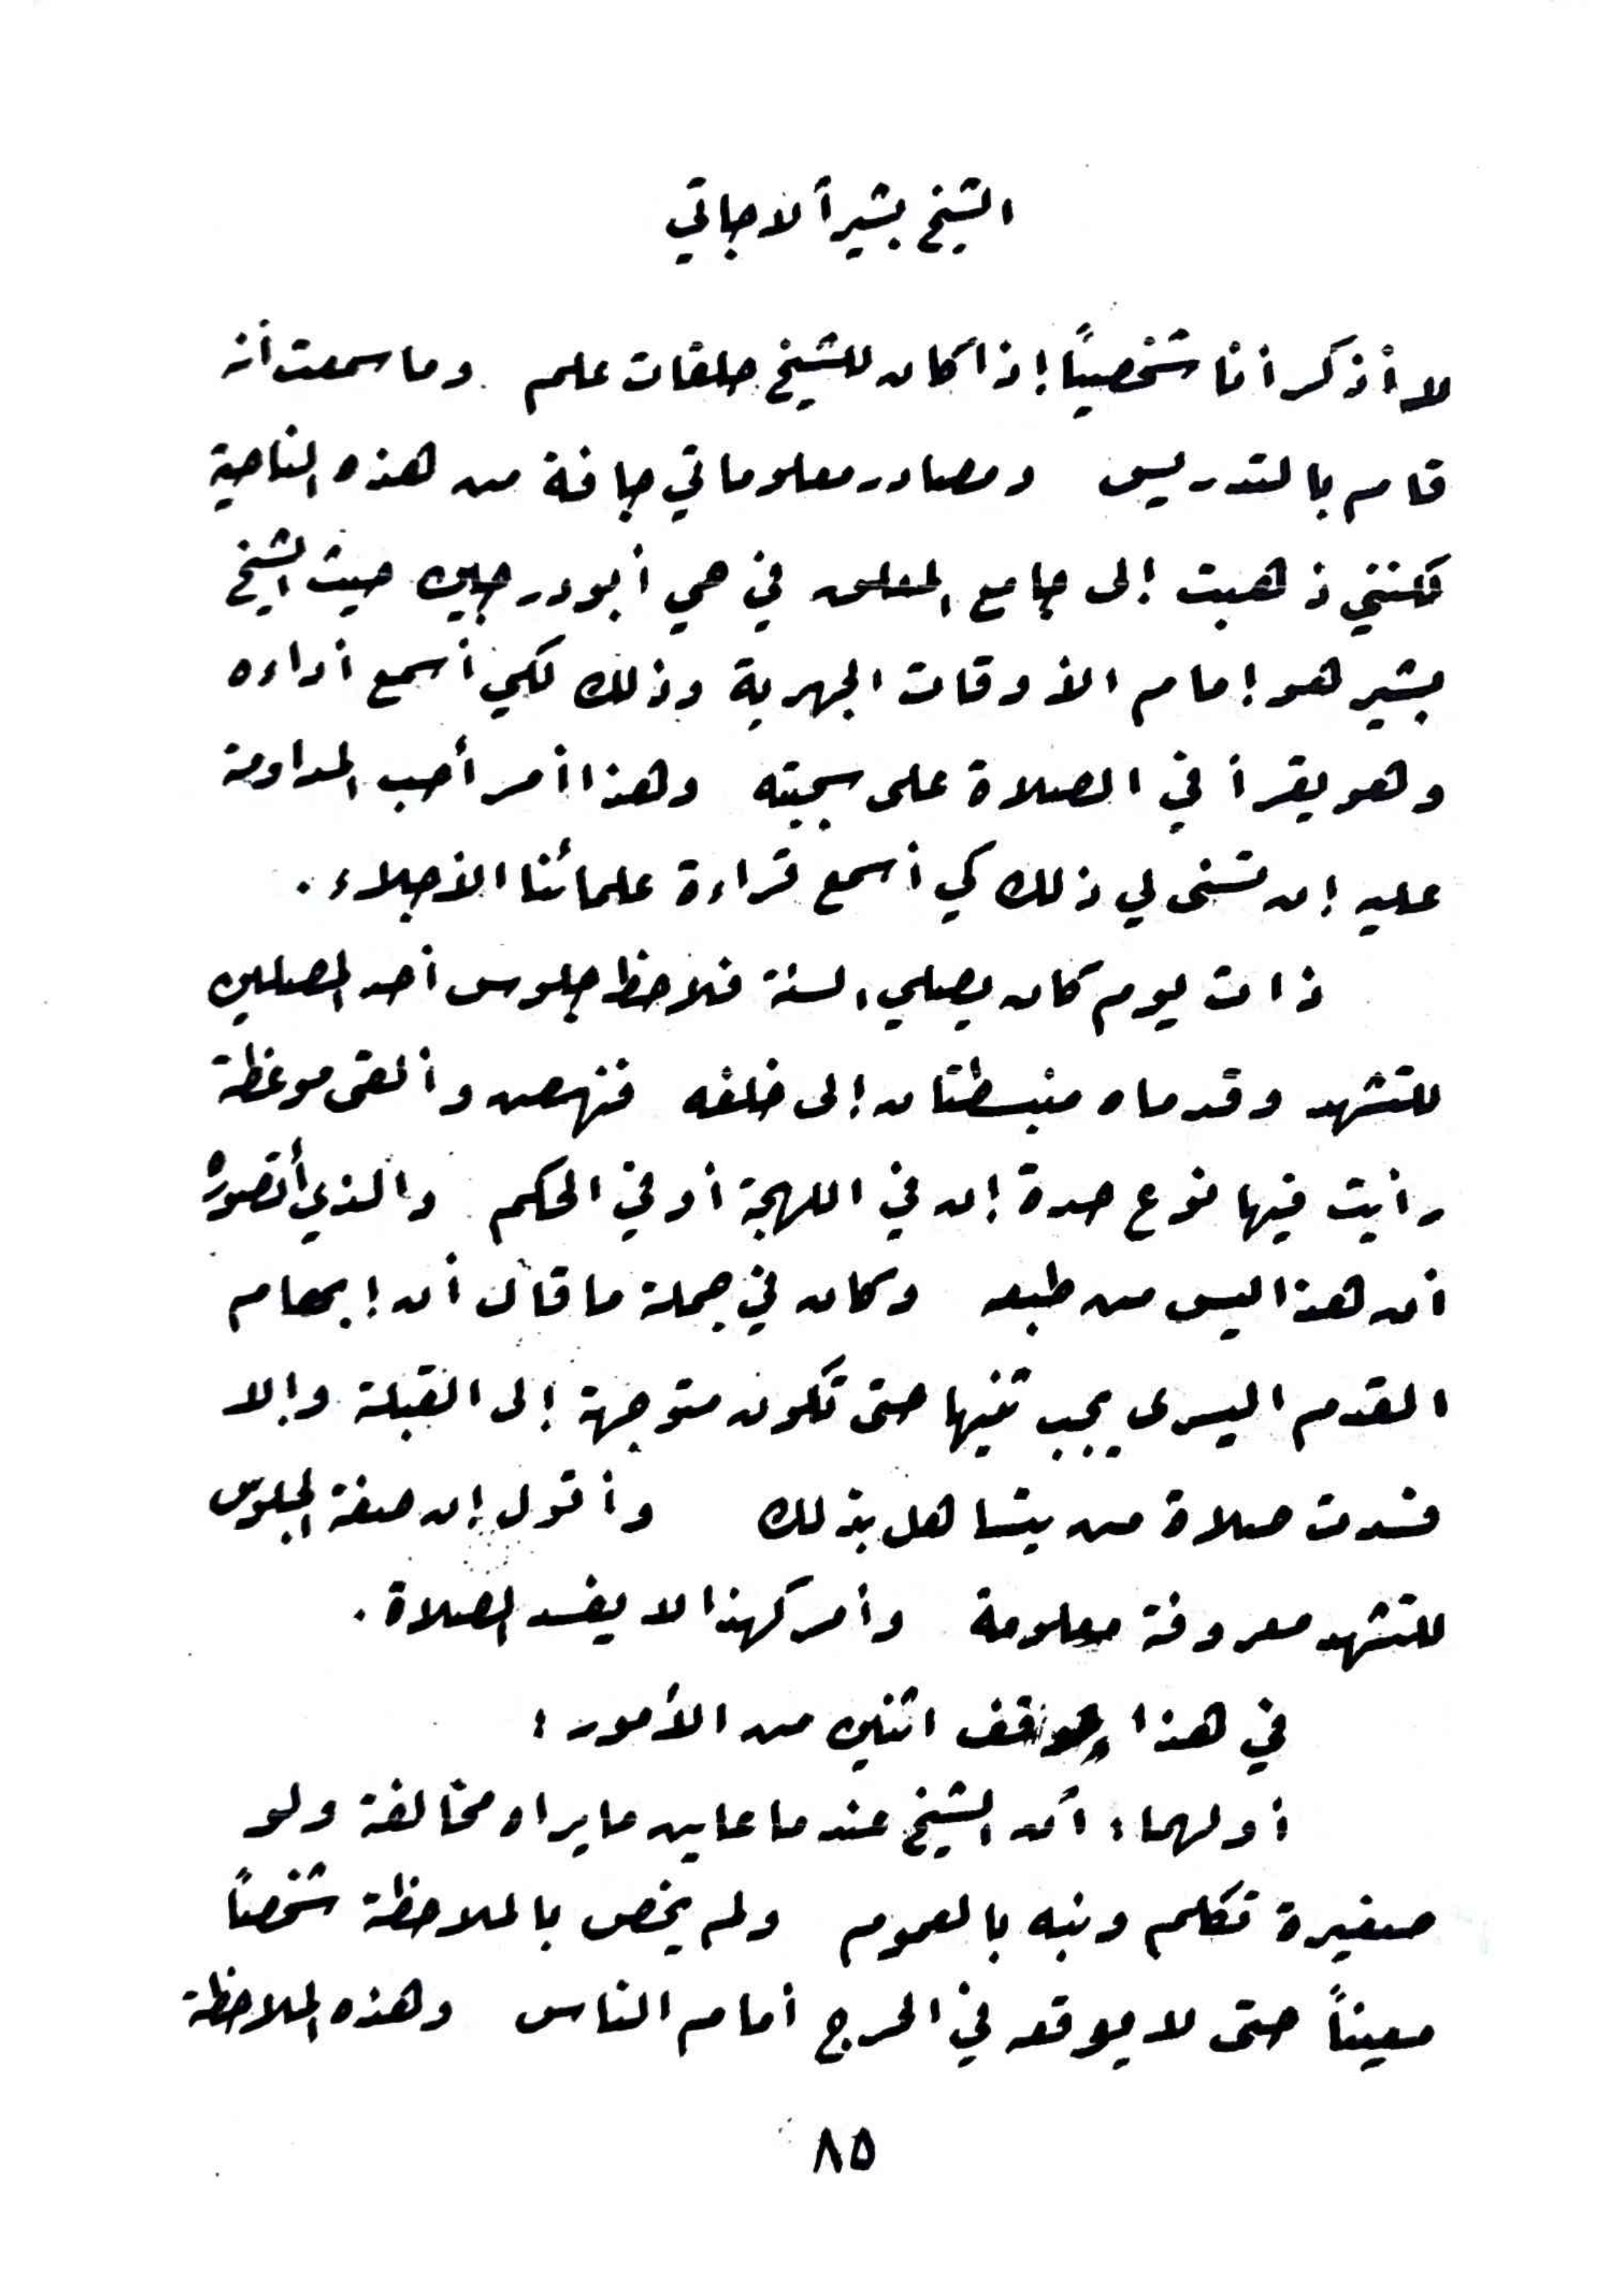 الشيخ بشير ألاجاتي
لا أذكر أنا شخصياً إذا كان للشيخ حلقات علم وما سمعت أنه
قام بالتدريس ومصادر معلوماتي جافة من هذه الناحية
لكنني ذهبت إلى جامع المعلق في حي أبودرجين حيث الشيخ
بشير هو إمام الأوقات الجهرية وذلك لكي أسمع أداءه
وهو يقرأ في الصلاة على سجيته وهذا أمر أحب المداومة
عليه إن تسنى لي ذلك كي أسمع قراءة علمائنا الأجلاء .
ذات يوم كان يصلي السنة فلاحظ جلوس أحد المصلين
للتشهد وقدماه منبسطتان إلى خلفه فنهض وألقى موعظة
رأيت فيها نوع حدة إن في اللهجة أو في الحكم والذي أتصوره
أن هذا ليس من طبعه وكان في جملة ما قال أن إبهام
القدم اليسرى يجب ثنيها حتى تكون متوجهة إلى القبلة وإلا
فسدت صلاة من يتساهل بذلك وأقول إن صفة الجلوس
للتشهد معروفة معلومة وأمر كهذا لا يفسد الصلاة .
في هذا موقف اثنين من الأمور :
أولهما : أن الشيخ عندما عاين ما يراه مخالفة ولو
صغيرة تكلم ونبه بالعموم ولم يخص بالملاحظة شخصاً
معيناً حتى لا يوقعه في الحرج أمام الناس وهذه الملاحظة
٨٥